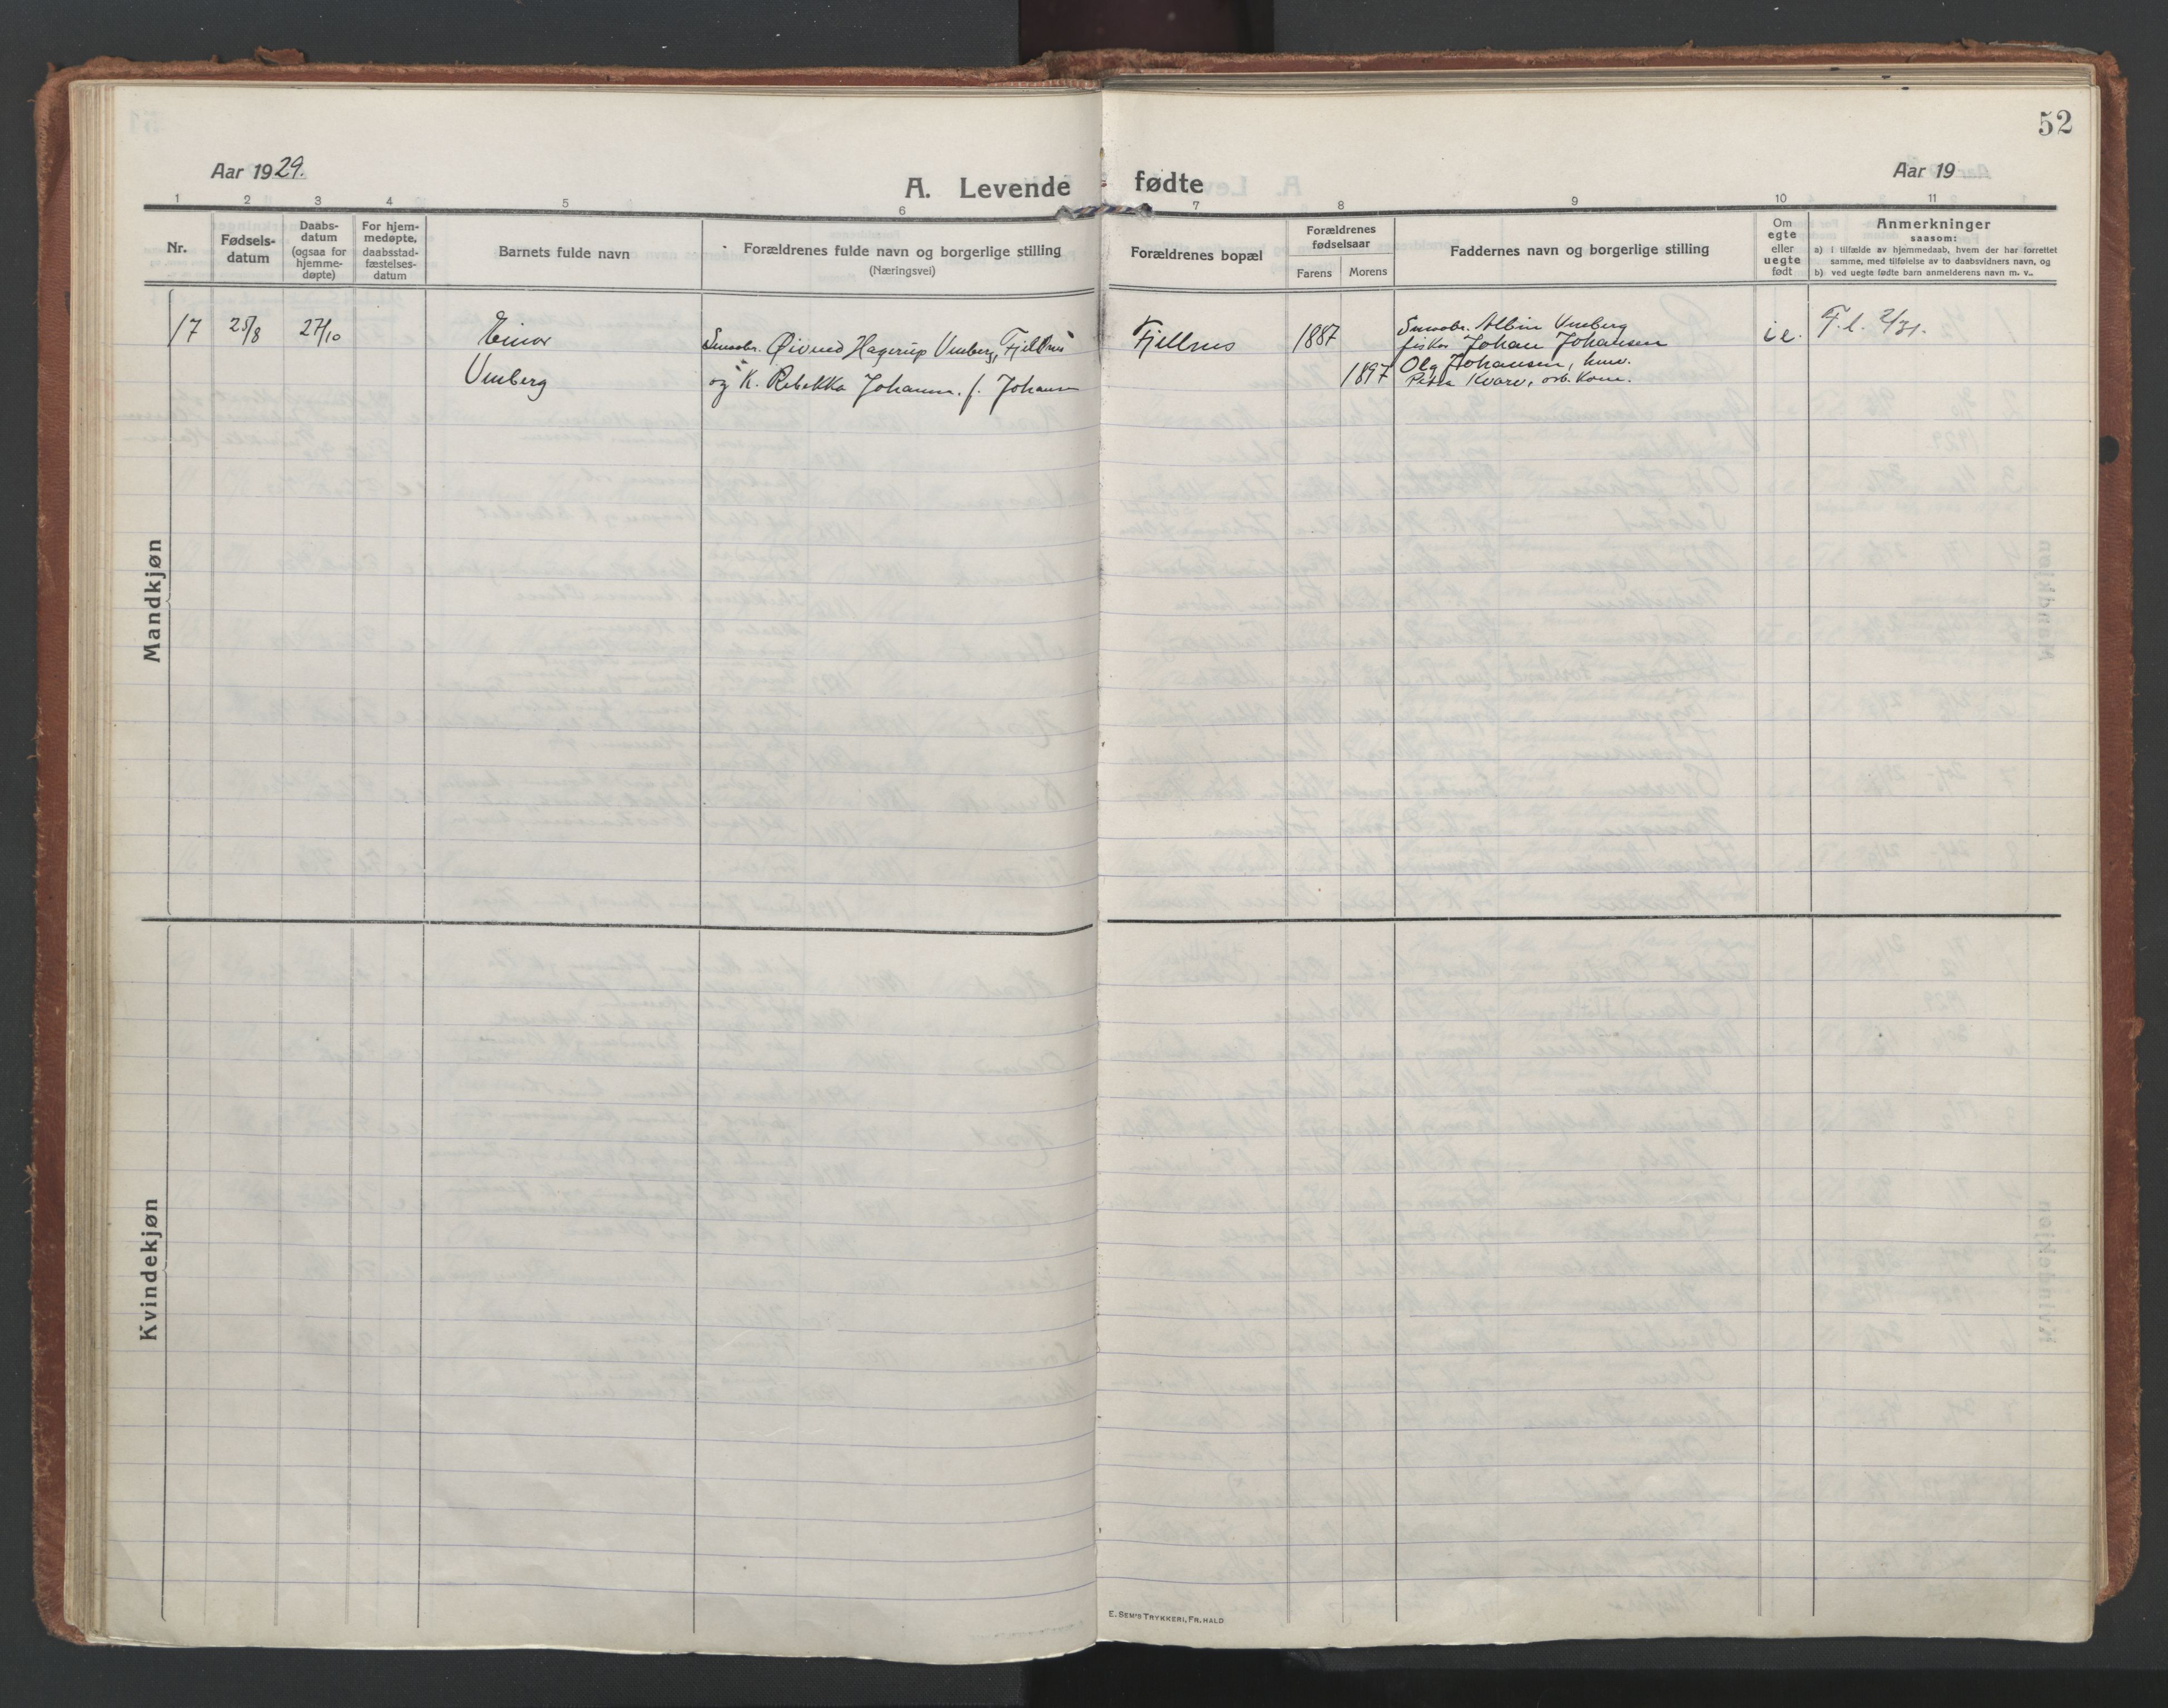 52
Aar 1929.
Aar 19
A. Levende fødte
1 2 3 4 5 6 7 8 9 10 11
Nr.
Fødsels-
datum
Daabs-
datum
(ogsaa for
hjemme-
døpte)
For hjem-
medøpte,
daabsstad-
fæstelses-
datum
Barnets fulde navn
Forældrenes fulde navn og borgerlige stilling
(Næringsvei)
Forældrenes bopæl
Forældrenes
fødselsaar
Farens Morens
Faddernes navn og borgerlige stilling
Om
egte
eller
uegte
født
Anmerkninger
saasom:
a) i tilfælde av hjemmedaab, hvem der har forrettet
samme, med tilføielse av to daabsvidners navn, og
b) ved uegte fødte barn anmelderens navn m. v..
Mandkjøn
17 25/8 27/10
Einar
Vinberg
Smaabr. Øivind Hagerup Vinberg, Fjellnes
og K. Rebekka Johanna. f. Johansen
Fjellnes
1887
1897
Smaabr. Albin Vinberg
fisker Johan Johansen
Olg Johansen, husm.
Petra Kvarv, arb. kone.
i e.
F. l. 2/31.
Kvindekjøn
E. SEM'S TRYKKERI, FR. HALD